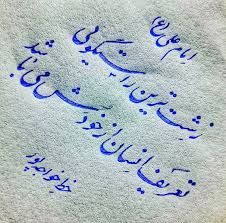 امام علی (ع)
زشت ترین راستگویی
تعریف انسان از خودش می باشد
خط خواجه پور